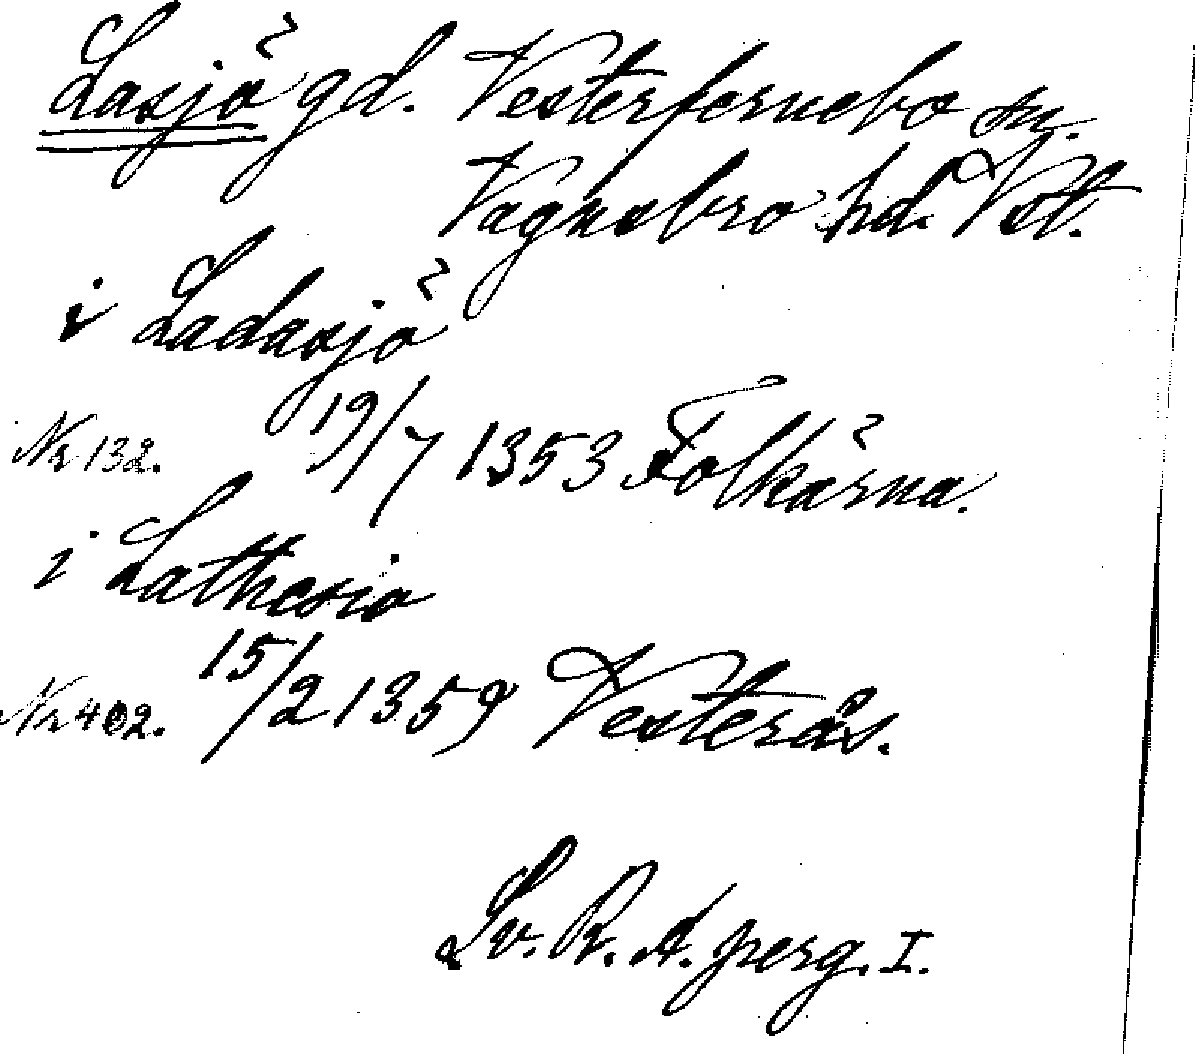 Lasjö gd. Vesterfernebo sn.
Vagnsbro hd. Vstl.
i Ladasjö
Nr 132. 19/7 1353 Folkärna.
i Lathasio
Nr 402. 15/2 1359 Vesterås.
Sv. R. A. perg. I.